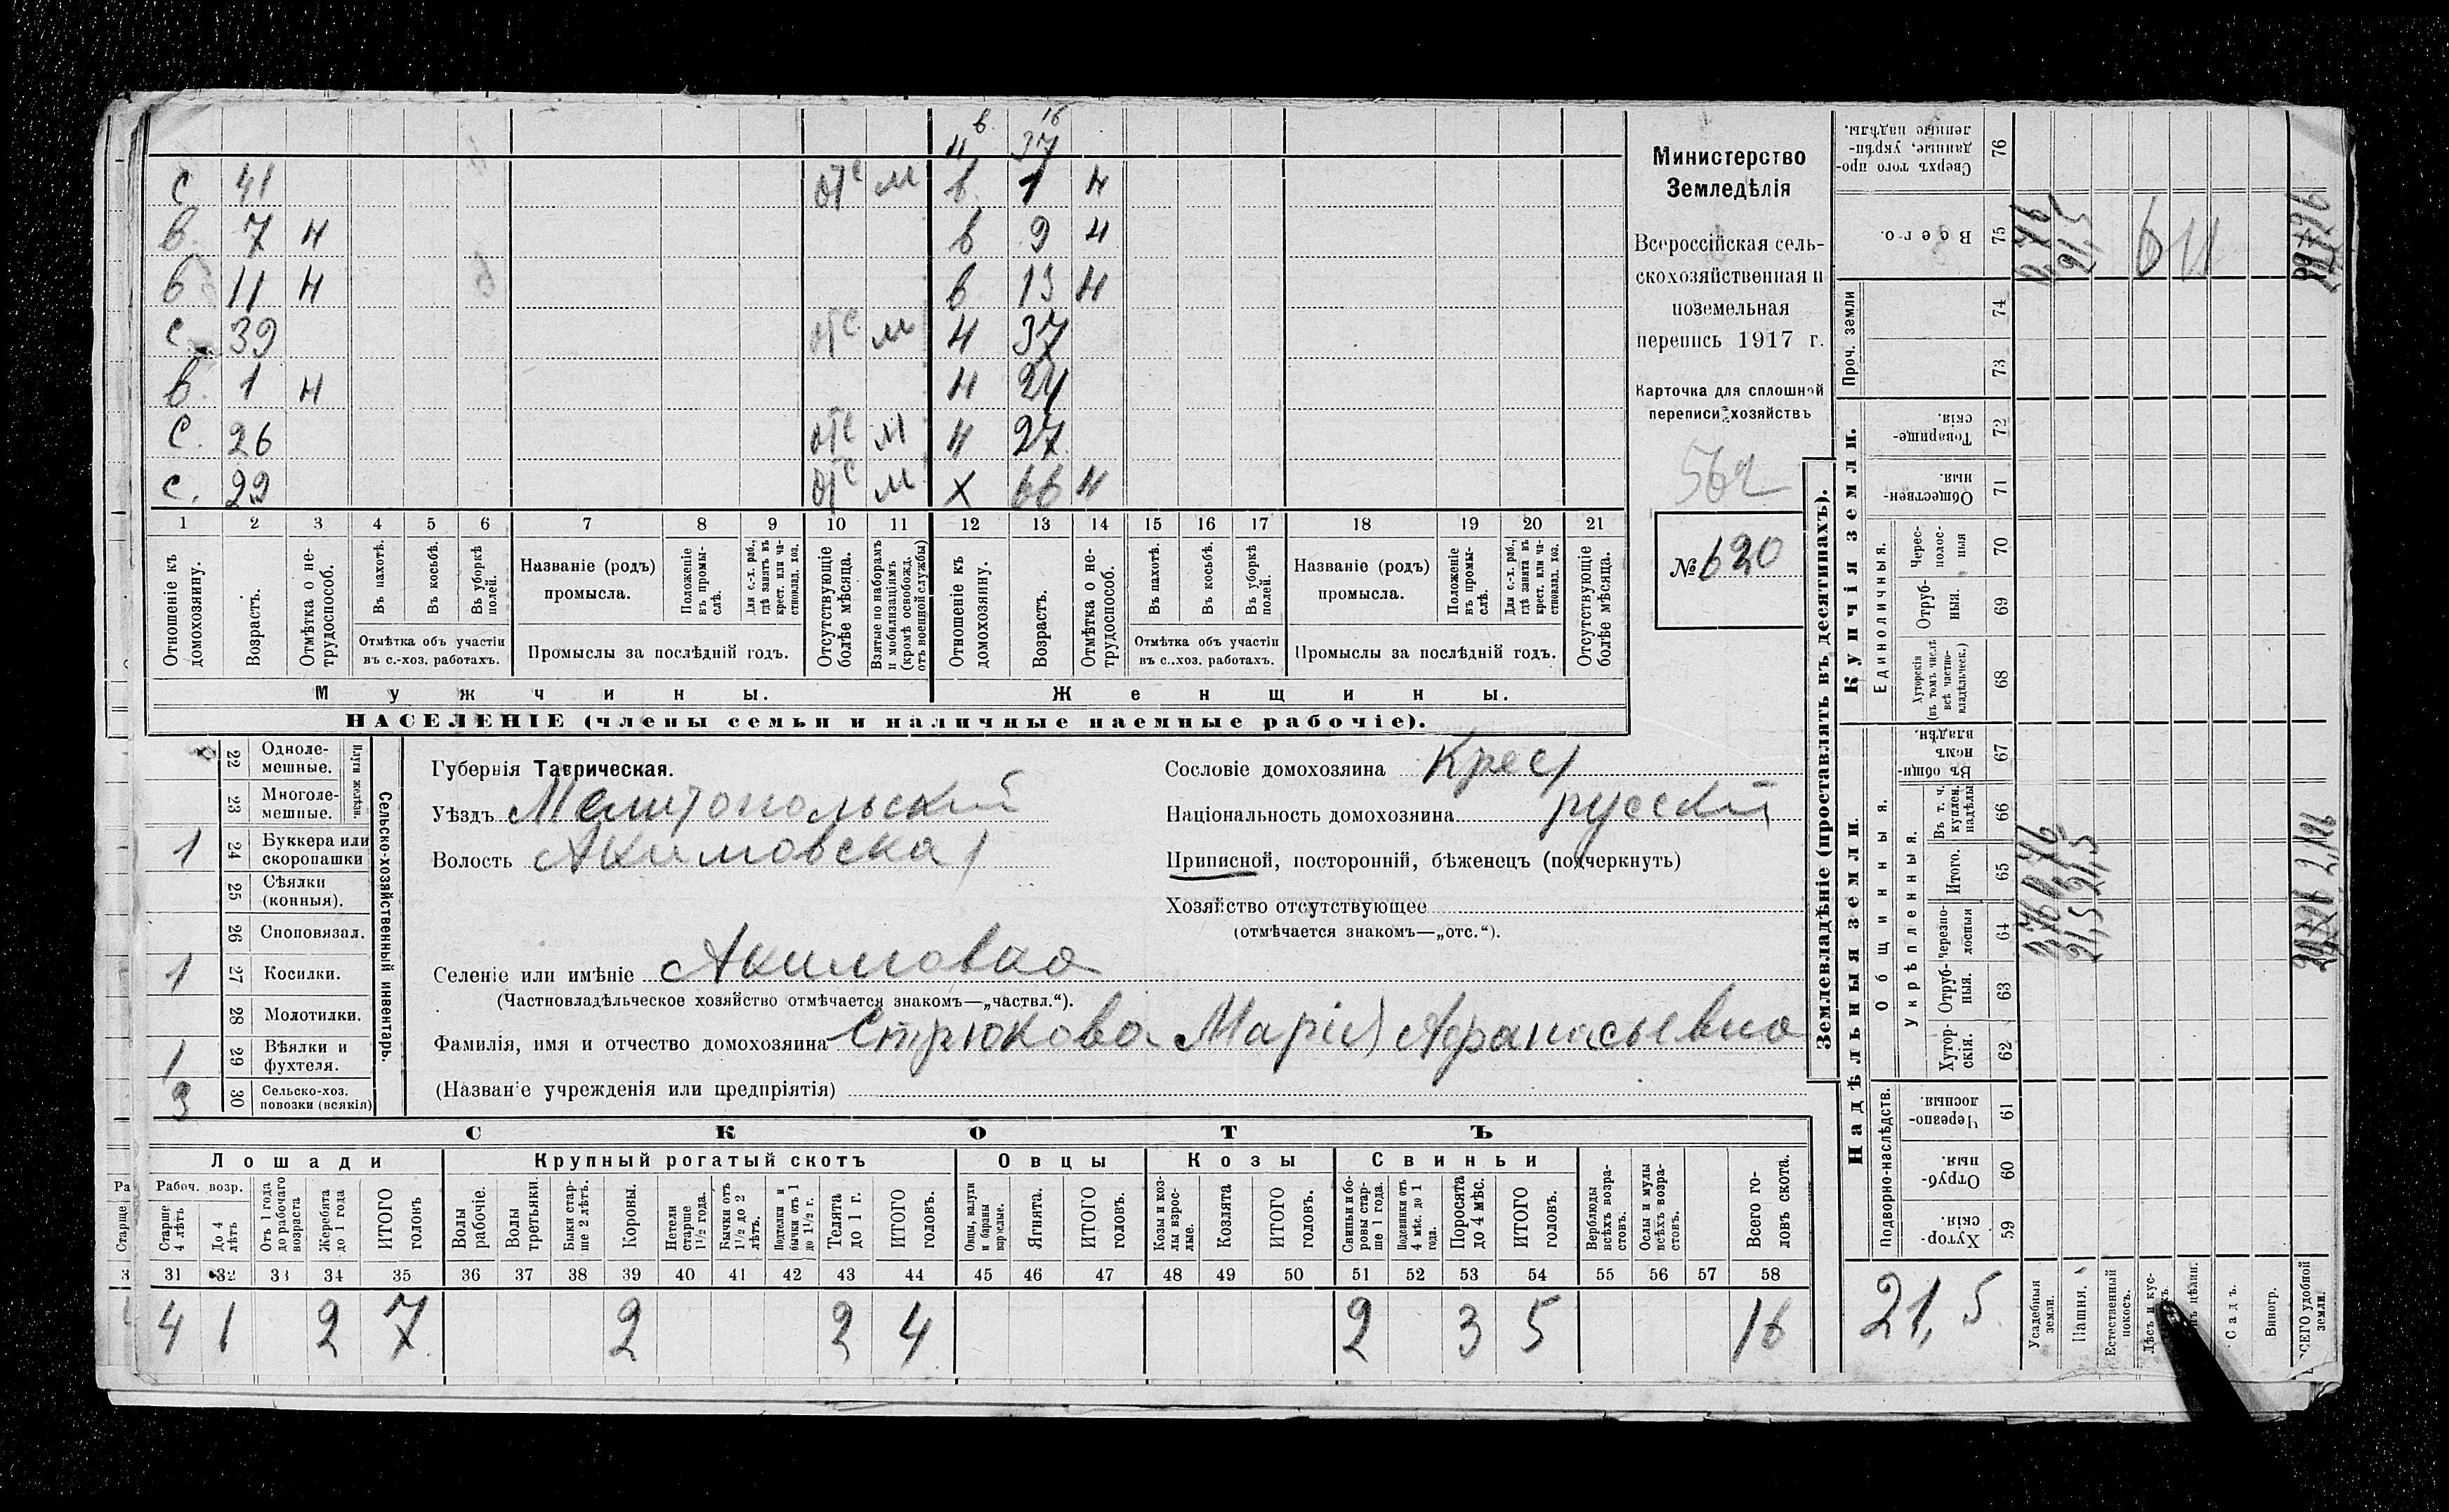 в 16
н 37
С 41 отс м в 1 н
в 7 н в 9 н
в 11 н в 13 н
с 39 отс м н 37
в 1 н н 24
с 26 отс м н 27
с. 29 отс м х 66 н
1 2 3 4 5 6 7 8 9 10 11 12 13 14 15 16 17 18 19 20 21
Отношеніе къ домохозяину.
Возрастъ.
Отмѣтка о не-
трудоспособ.
Въ пахотѣ.
Въ косьбѣ.
Въ уборкѣ полей.
Отмѣтка объ участіи
въ с.-хоз. работахъ.
Названіе (родъ)
промысла.
Положеніе въ промы-
слѣ.
Для с.-х. раб., гдѣ занятъ въ крест. или ча-
стновлад. хоз.
Промыслы за послѣдній годъ.
Отсутствующіе болѣе мѣсяца.
Взятые по наборамъ и мобилизаціямъ (кромѣ освобожд. отъ военной службы)
Отношеніе къ домохозяину.
Возрастъ.
Отмѣтка о не-
трудоспособ.
Въ пахотѣ.
Въ косьбѣ.
Въ уборкѣ полей.
Отмѣтка объ участіи
въ с.-хоз. работахъ.
Названіе (родъ)
промысла.
Положеніе въ промы-
слѣ.
Для с.-х. раб., гдѣ занята въ крест. или ча-
стновлад. хоз.
Промыслы за послѣдній годъ.
Отсутствующіе болѣе мѣсяца.
Мужчины. Женщины.
НАСЕЛЕНІЕ (члены семьи и наличные наемные рабочіе).
Министерство
Земледѣлія
Всероссійская сель-
скохозяйственная и
поземельная
перепись 1917 г.
Карточка для сплошной
переписи хозяйствъ
562
№ 620
Сельско-хозяйственный инвентарь.
Плуги желѣзн.
22 Одноле-
мешные.
23 Многоле-
мешные.
1 24 Буккера или
скоропашки
25 Сѣялки
(конныя).
26 Сноповязал.
1 27 Косилки.
28 Молотилки.
1 29 Вѣялки и
фухтеля.
3 30 Сельско-хоз.
повозки (всякія)
Губернія Таврическая.
Уѣздъ Мелитопольскій
Волость Акимовская
Селеніе или имѣніе Акимовка
(Частновладѣльческое хозяйство отмѣчается знакомъ—„частвл.“).
Фамилія, имя и отчество домохозяина Стрюкова Марія Афанасьевна
(Названіе учрежденія или предпріятія)
Сословіе домохозяина Крест
Національность домохозяина русскій
Приписной, посторонній, бѣженецъ (подчеркнуть)
Хозяйство отсутствующее
(отмѣчается знакомъ—„отс.“).
СКОТЪ
Лошади Крупный рогатый скотъ Овцы Козы Свиньи
Рабоч. возр.
Старше 4 лѣтъ
До 4 лѣтъ
Отъ 1 года до рабочаго возраста
Жеребята до 1 года
ИТОГО головъ
Волы рабочіе.
Волы третьяки.
Быки стар-
ше 2 лѣтъ.
Коровы.
Нетели старше 1½ года.
Бычки отъ 1½ до 2 лѣтъ.
Подтелки и бычки отъ 1 до 1½ г.
Телята до 1 г.
ИТОГО головъ.
Овцы, валухи и бараны взрослые.
Ягнята.
ИТОГО головъ.
Козы и коз-
лы взрос-
лые.
Козлята
ИТОГО головъ.
Свиньи и бо-
ровы стар-
ше 1 года.
Подсвинки отъ 4 мѣс. до 1 года.
Поросята до 4 мѣс.
ИТОГО головъ.
Верблюды всѣхъ возра-
стовъ.
Ослы и мулы всѣхъ возра-
стовъ.
Всего го-
ловъ скота.
31 32 33 34 35 36 37 38 39 40 41 42 43 44 45 46 47 48 49 50 51 52 53 54 55 56 57 58
4 1 2 7 2 2 4 2 3 5 16
Землевладѣніе (проставлять въ десятинахъ).
Надѣльныя земли.
Купчія земли.
Проч. земли
Подворно-наслѣдств.
Общинныя.
Укрѣпленныя.
Единоличныя.
Хутор-
скія. 59
Отруб-
ныя. 60
Черезпо-
лосныя. 61
Хутор-
скія. 62
Отруб-
ныя. 63
Черезпо-
лосныя 64
Итого. 65
Въ т. ч. куплен. надѣлы 66
Въ общин-
номъ владѣн. 67
Хуторскія (въ томъ числѣ всѣ частно-
владѣльческ.) 68
Отруб-
ныя. 69
Черес-
полос-
ныя 70
Обществен-
ныя. 71
Товарище-
скія. 72
73
74
Всего. 75
Сверхъ того про-
данные, укрѣп-
ленные надѣлы. 76
21,5
Усадебныя земли.
Пашня.
Естественный покосъ.
Лѣсъ и кус-
Садъ.
Виногр.
ВСЕГО удобной земли.
21,5
21,5
21,5